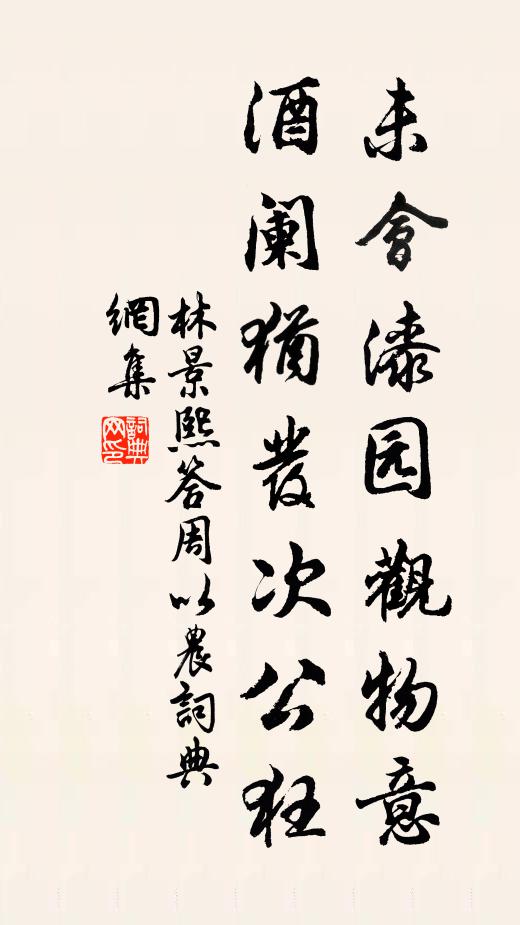 未會漆园觀物意
酒阑猶發次公狂
林景熙答周以農詞典
網集
詞典网印